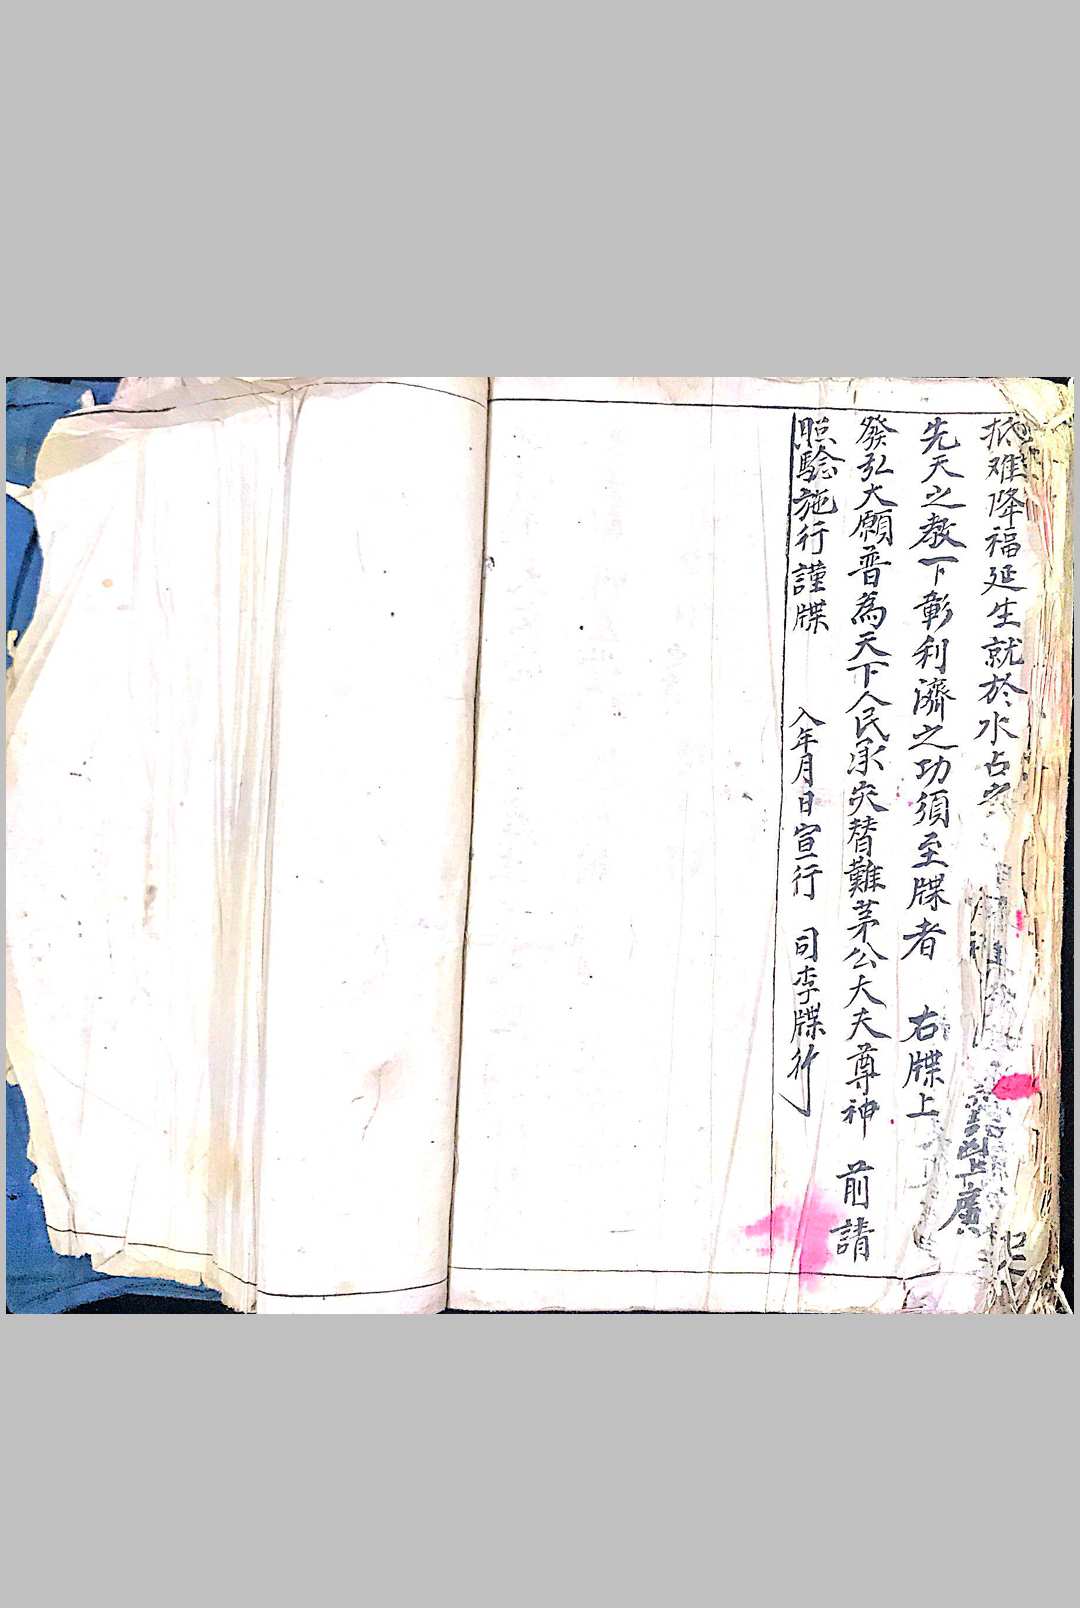 抵难降福延生就於水占之
廣
先天之教下彰利濟之功須至牒者 右牒上
發弘大願普為天下人民承灾替難茅公大夫尊神 前請
照驗施行謹牒 入年月日宣行 司李牒行